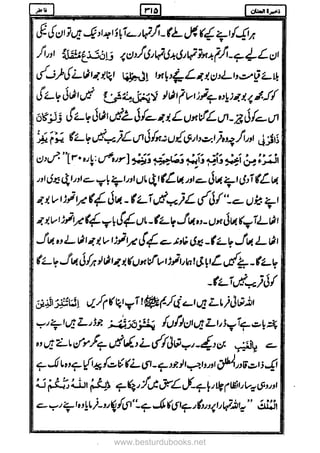 ذخیرۃ الجنان ۳۱۵ فاطر
ہر ایک کو اپنے کیے کا پھل ملے گا۔ اگر تمہارے آباؤ اجداد نیک ہیں تو ان کی نیکی
ان کے لیے ہے۔ اگر تم بد ہو تو تمہاری بدی تمہاری گردن پر وَاِنْ تَدْعُ مُثْقَلَةٌ اور اگر
بلائے بوجھ کے نیچے دبا ہوا اِلٰی حِمْلِهَا اپنا بوجھ اٹھانے کی طرف کسی
کو کہ مجھ پر بوجھ زیادہ ہے تھوڑا سا تم اٹھا لو لَا یُحْمَلْ مِنْهُ شَیْءٌ نہیں اٹھائی جائے گی
اس سے کوئی چیز۔ اس کے گناہوں کے بوجھ سے کوئی شے نہیں اٹھائی جائے گی وَلَوْ كَانَ
ذَا قُرْبٰى اور اگرچہ وہ قرابت دار ہی کیوں نہ ہو کوئی اس کے قریب نہیں آئے گا یَوْمَ یَفِرُّ
الْمَرْءُ مِنْ اَخِیْهِ وَاُمِّهٖ وَاَبِیْهِ وَصَاحِبَتِهٖ وَبَنِیْهِ [سورہ عبس: پارہ ۳۰] "جس دن
بھاگے گا آدمی اپنے بھائی سے اور بھاگے گا اپنی ماں اور اپنے باپ سے اور اپنی بیوی اور
اپنے بیٹوں سے۔" کوئی کسی کے قریب نہیں آئے گا۔ بھائی کہے گا میرا تھوڑا سا بوجھ
اٹھا لے آپ کا بھائی ہوں۔ وہ بھاگ جائے گا۔ ماں کہے گی باپ کہے گا میرا تھوڑا سا بوجھ
اٹھا لے بھاگ جائے گا۔ بیوی خاوند سے کہے گی میرا تھوڑا سا بوجھ اٹھا لے وہ بھاگ
جائے گا۔ بیٹے کہیں گے ابا جی! ہمارا تھوڑا سا گناہوں کا بوجھ اٹھا لو کوئی ہو بھاگ جائے گا
کوئی قریب نہیں آئے گا۔
اللہ تعالیٰ فرماتے ہیں اے نبی کریم ﷺ! آپ اپنا کام کریں اِنَّمَا تُنْذِرُ الَّذِیْنَ
پختہ بات ہے آپ ڈراتے ہیں ان لوگوں کو یَخْشَوْنَ رَبَّهُمْ جو ڈرتے ہیں اپنے رب
سے بِالْغَیْبِ بن دیکھے۔ رب تعالیٰ کو کسی نے دیکھا نہیں ہے مگر مومن مانتے ہیں وہ
ایک ذات قادر المطلق اور واجب الوجود ہے۔ اسی نے کائنات کو پیدا کیا ہے وہ مالک ہے
اور وہی یہ سارا نظام چلا رہا ہے۔ کل کے سبق میں گزر چکا ہے ذٰلِكُمُ اللّٰهُ رَبُّكُمْ لَهُ
الْمُلْكُ "یہ اللہ تمہارا پروردگار ہے اسی کا ملک ہے۔" اسی کو پکارو۔ فرمایا وہ اپنے رب سے
www.besturdubooks.net